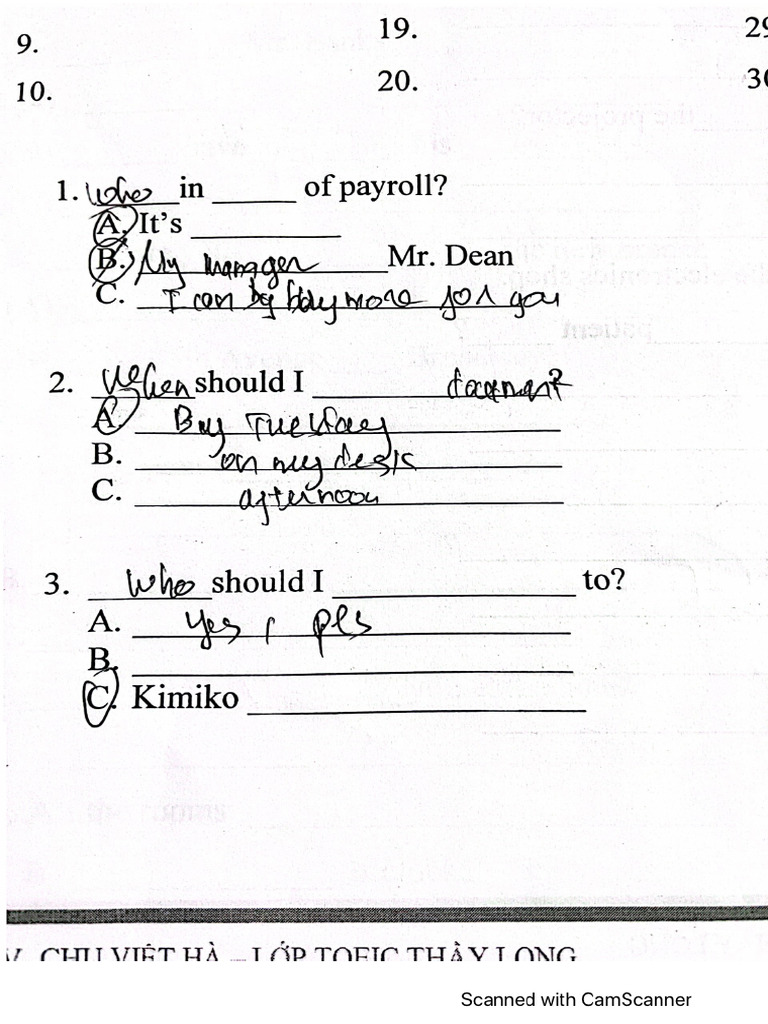 9. 19. 29
10. 20. 30
1. who in ______ of payroll?
A. It's ______
B. My manager ______ Mr. Dean
C. I can buy more for you
2. When should I ______ document?
A. By Tuesday
B. on my desk
C. afternoon
3. Who should I ______ to?
A. Yes, pls
B. ______
C. Kimiko ______
CHU VIỆT HÀ – LỚP TOEIC THẦY LONG
Scanned with CamScanner